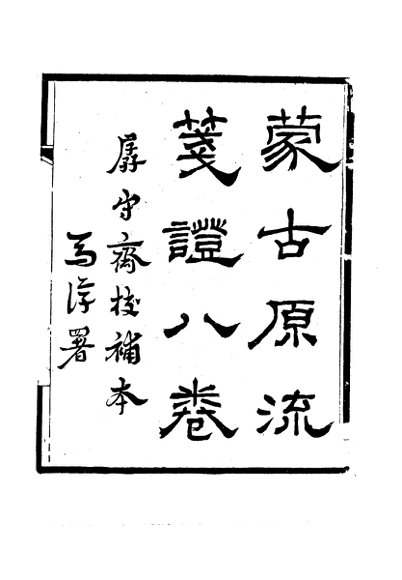 蒙古原流
箋證八卷
孱守齋校補本
馬浮署